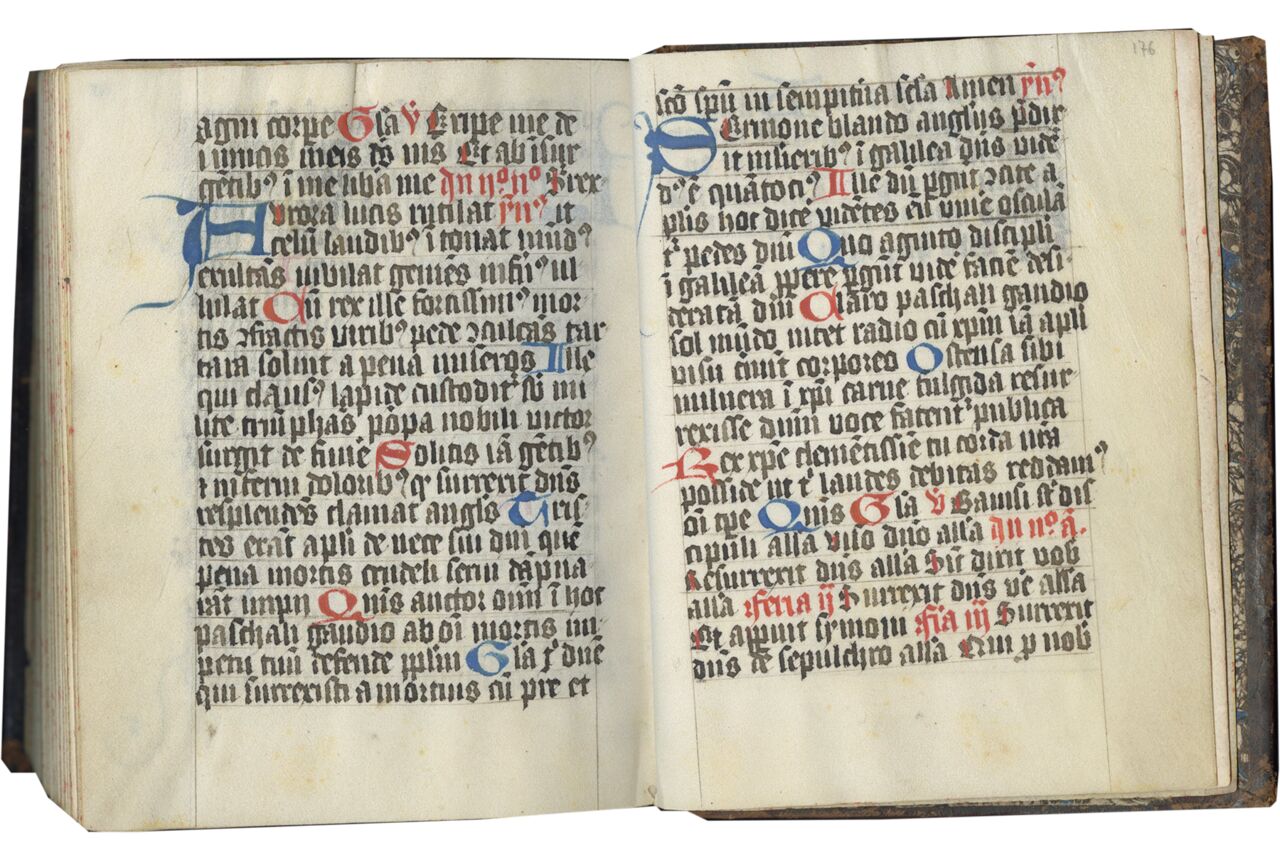 agni corpe Gla v̄ Eripe me de
i imicis meis ds ms Et ab isur
gētibꝰ ī me liba me
Aurora lucis rutilat ym̄ꝰ it
celū laudibꝰ ī tonat mūdꝰ
exultās iubilat gemēs infnꝰ ul
lulat Cū rex ille fortissimꝰ mor
tis ꝯfractis viribꝰ pede ꝯculcās tar
tara soluit a pena miseros Ille
qui clausꝰ lapide custodit᷑ sb mi
lite triūphās pōpa nobili victor
surgit de funē Solutis iā gētibꝰ
⁊ inferni doloribꝰ qꝛ surrexit dn̄s
resplendēs clamat angls Tris
tes erāt apli de nece sui dn̄i quē
pena mortis crudeli serui dāpna
rāt impii Qs̄ms auctor oīm ī hoc
paschali gaudio ab oī mortis im
petu tuū defende pplm Gla t᷑ dn̄e
qui surrexisti a mortuis cū pre et
176
scō spū in sempitna scla Amen ym̄ꝰ
Sermone blando anglus pdix
it mlieribꝰ ī galilea dn̄s vidē
dꝰ ē quātociꝰ Ille dū pgūt ꝯcite a
plis hoc dicē vidētes eū viuē osculā
t᷑ pedes dn̄i Quo agnito discipli
ī galileā ppere pgūt vidē faciē desi
deratā dn̄i Claro paschali gaudio
sol mūdo nitet radio cū xpm̄ iā apli
visu cnūt corporeo Ostensa sibi
vulnera ī xpi carne fulgida resur
rexisse dn̄m voce fatent᷑ publica
Rex xpe clemētissīe tu corda nr̄a
posside ut t᷑ laudes debitas reddamꝰ
oī tpe Qs̄ms Gla v̄ Gauisi st dis
cipuli alla viso dn̄o alla
Resurrexit dn̄s alla Sic̄ dixit vob
alla feria ij Surrexit dn̄s ve alla
Et appuit symoni fia iij Surrexit
dn̄s de sepulchro alla Qui p nob